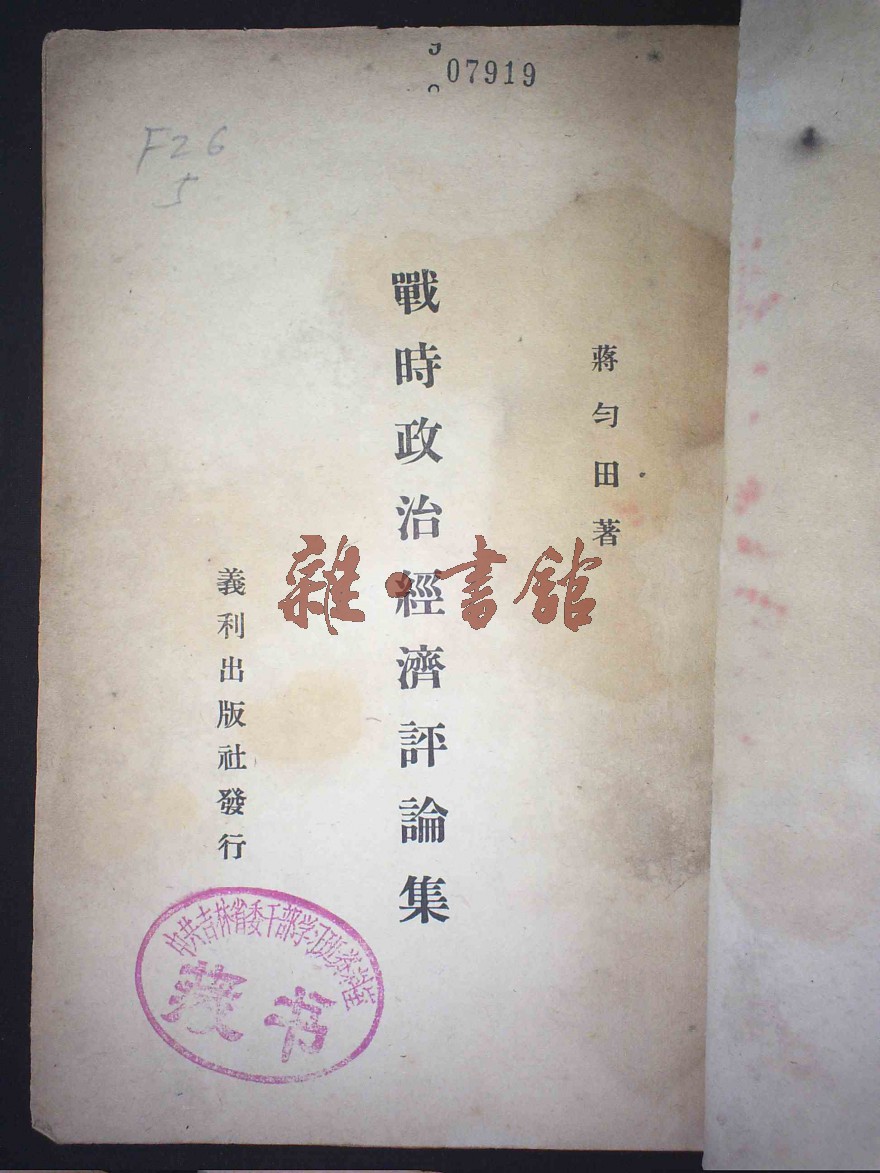 07919
F26
5
蔣勻田著
戰時政治經濟評論集
義利出版社發行
雜·書館
中共吉林省委干部学习班资料室
藏书